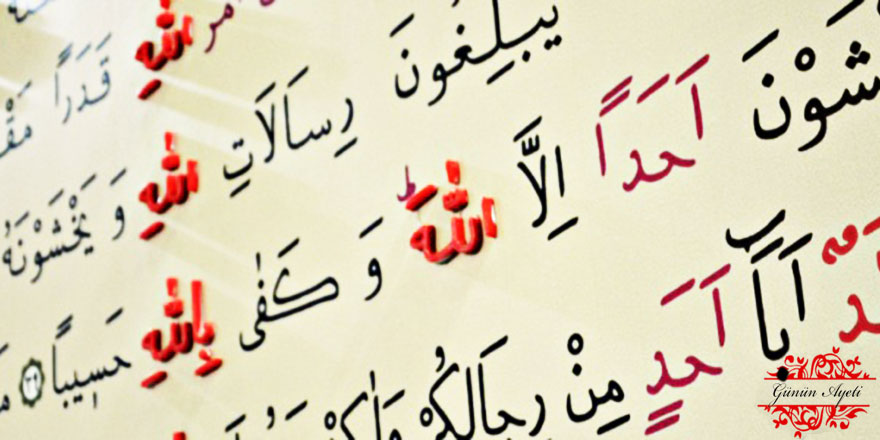 اللهِ قَدَرًا
يُبَلِّغُونَ رِسَالَاتِ اللهِ وَ يَخْشَوْنَهُ
شَوْنَ اَحَدًا اِلَّا اللهَ ۜ وَ كَفٰى بِاللهِ حَسِيبًا ٣٩
اَبَآ اَحَدٍ مِنْ رِجَالِكُمْ وَلٰكِنْ
Günün Ayeti